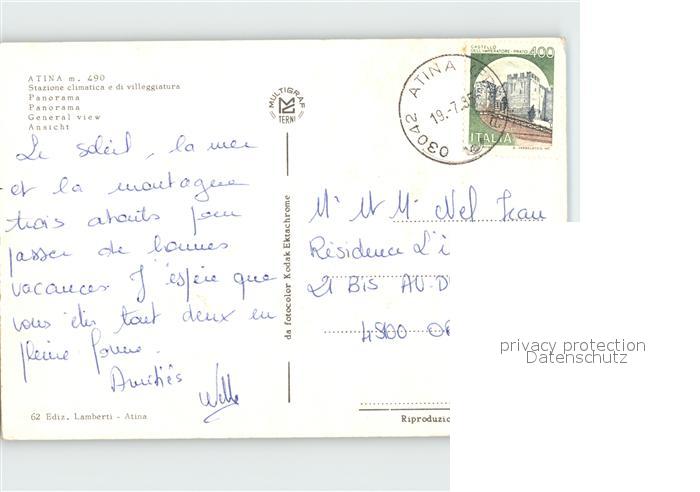 ATINA m. 490
Stazione climatica e di villeggiatura
Panorama
Panorama
General view
Ansicht
Le soleil, la mer
et la montagne
trois atouts pour
passer de bonnes
vacances. J'espère que
vous êtes tout deux en
pleine forme.
Amitiés
62 Ediz. Lamberti - Atina
MULTIGRAF
TERNI
da fotocolor Kodak Ektachrome
03042 ATINA
19.-7.85
CASTELLO
DELL'IMPERATORE - PRATO 400
ITALIA
Mr et Me Nel Jean
Résidence L'
21 BIS AV. D
Riproduzio
privacy protection
Datenschutz